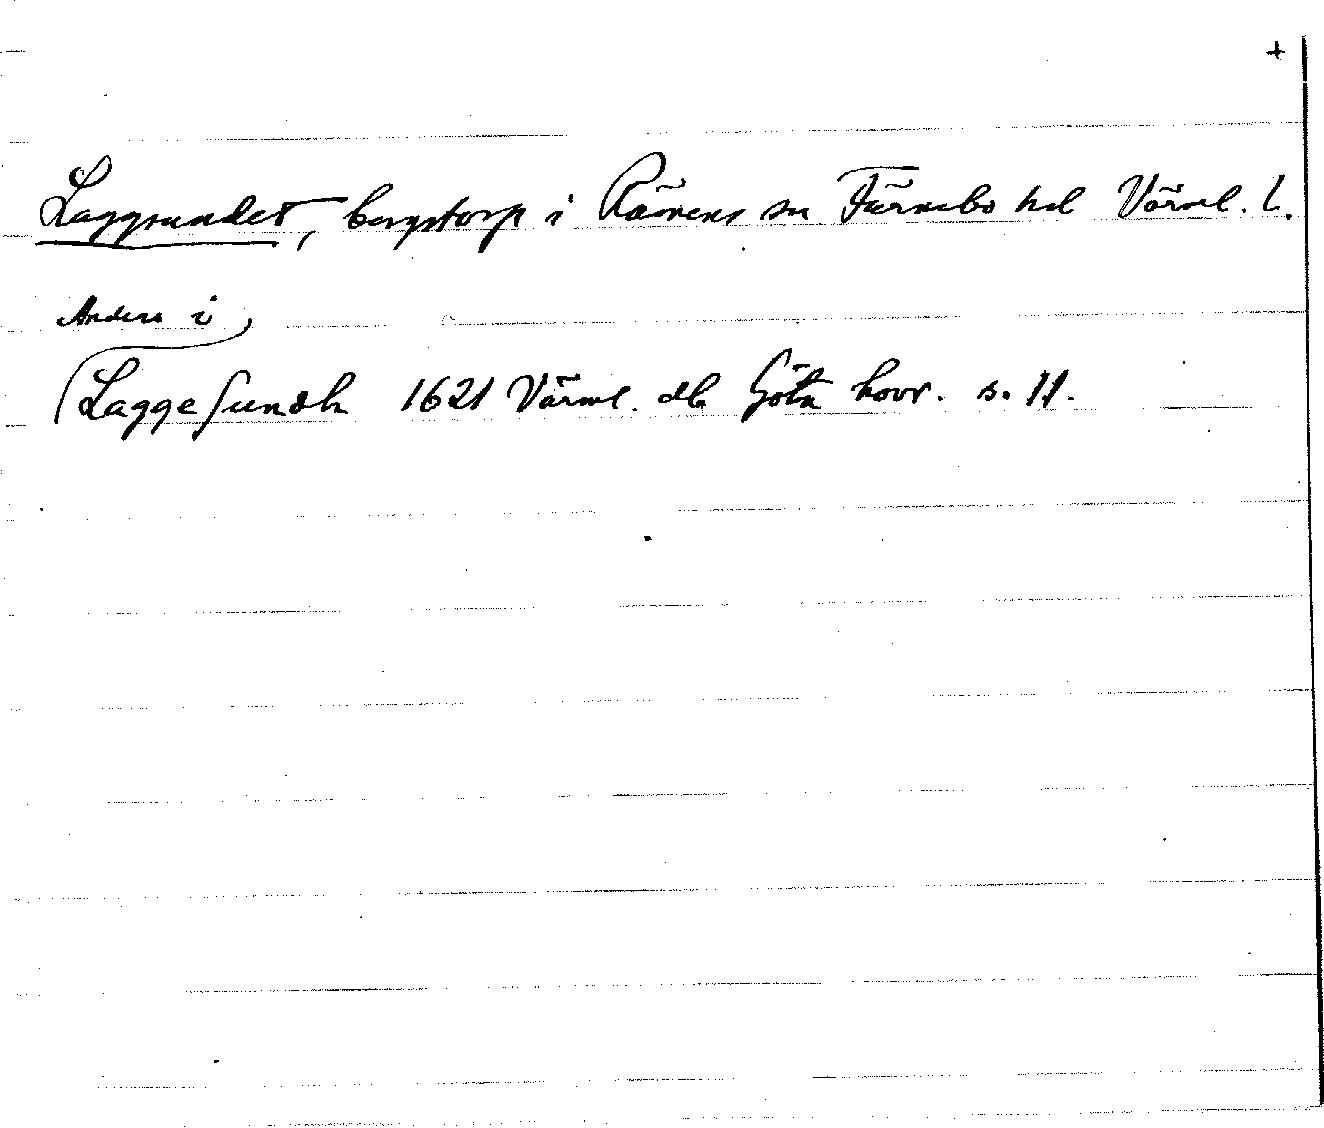 +
Laggsundet, bergstorp i Rämens sn Färnebo hd Värml. l.
Anders i
(Laggesundh 1621 Värml. db Göta hovr. s. 11.